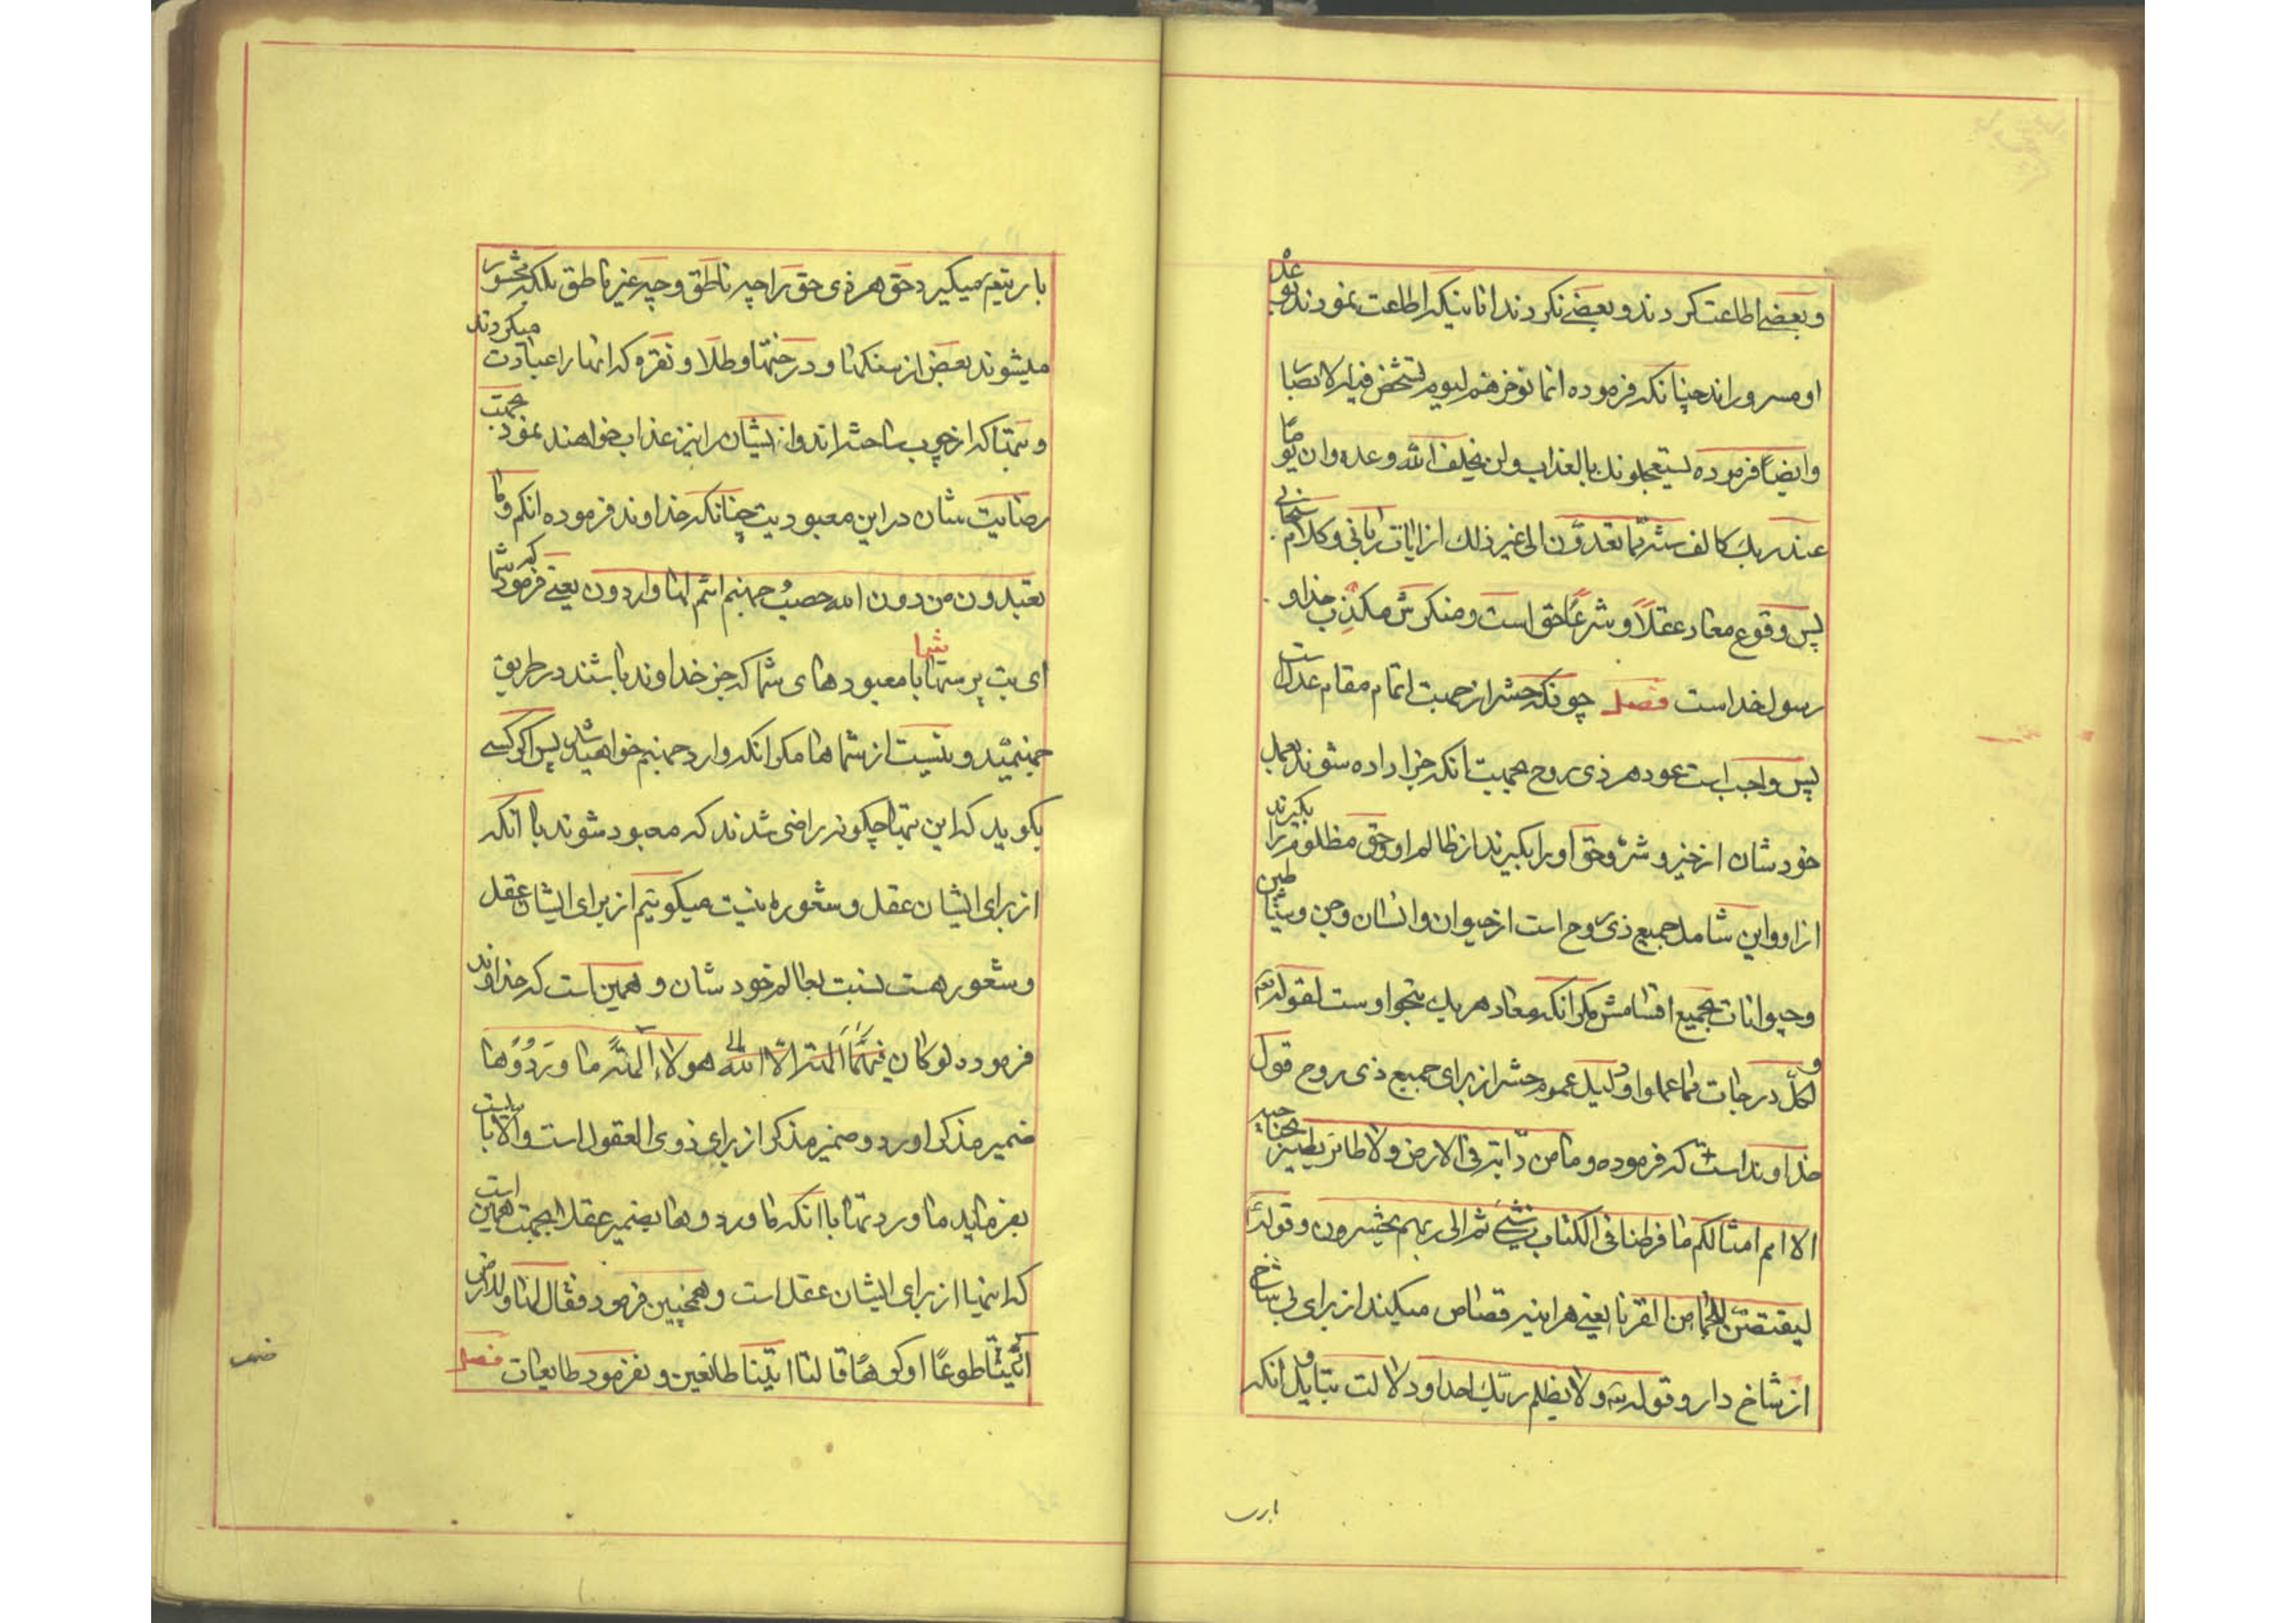 و بعضی اطاعت کردند و بعضی نکردند انانیکه اطاعت نمودند بوعده
او مسروراند چنانکه فرموده انما نوخرهم لیوم تشخص فیه الابصار
و ایضا فرموده یستعجلونک بالعذاب و لن یخلف الله وعده و ان یوما
عند ربک کالف سنة مما تعدون الی غیر ذلک از ایات ربانی و کلام سبحانی
پس وقوع معاد عقلاً و شرعاً حق است و منکرش مکذب خدا و
رسول خداست فصل چونکه حشر از جهت اتمام مقام عدالت است
پس واجب است عود هر ذی روح بجهت انکه جزا داده شوند بعمل
خودشان از خیر و شر و حق او را بگیرند از ظالم او و حق مظلوم را بگیرند
از او و این شامل جمیع ذی روح است از حیوان و انسان و جن و شیاطین
و حیوانات بجمیع اقسامش مگر انکه معاد هر یک بنحو اوست لقوله تعم
و لکل درجات مما عملوا و دلیل عموم حشر از برای جمیع ذی روح قول
خداوند است که فرموده و ما من دابة فی الارض و لا طائر یطیر بجناحیه
الا امم امثالکم ما فرطنا فی الکتاب من شیئ ثم الی ربهم یحشرون و قوله
لیقتصن للجما من القرنا یعنی هراینه قصاص میکند از برای بی شاخ
از شاخ دار و قوله تع و لا یظلم ربک احدا و دلالت بتاویل انکه
بارے
باریتعم میگیرد حق هر ذی حق را چه ناطق و چه غیر ناطق بلکه محشور
میشوند بعض از سنگها و درختها و طلا و نقره که انها را عبادت میکردند
و بتها که از چوب ساخته اند و ایشان را نیز عذاب خواهند نمود بجهت
رضایت شان در این معبودیت چنانکه خداوند فرموده انکم و ما
تعبدون من دون الله حصب جهنم انتم لها واردون یعنی فرمود که شما
ای بت پرستها با معبودهای شما که جز خداوند باشند در طریق
جهنمید و نیست از شماها مگر انکه وارد جهنم خواهید شد پس اگر کسی
بگوید که این بتها چگونه راضی شدند که معبود شوند با انکه
از برای ایشان عقل و شعوره نیست میگوئیم از برای ایشان عقل
و شعور هست نسبت بعالم خودشان و همین است که خداوند
فرموده لو کان فیهما الهة الا الله الی هولاء الهةً ما وردوها
ضمیر مذکر اورد و ضمیر مذکر از برای ذوی العقول است و الا بایست
بفرماید ما وردتها با انکه ما وردوها بضمیر عقلا بجهت همین است
که اینها از برای ایشان عقل است و همچنین فرمود فقال لها و للارض
ائتیا طوعاً او کرهاً قالتا اتینا طائعین و نفرمود طایعات فصل